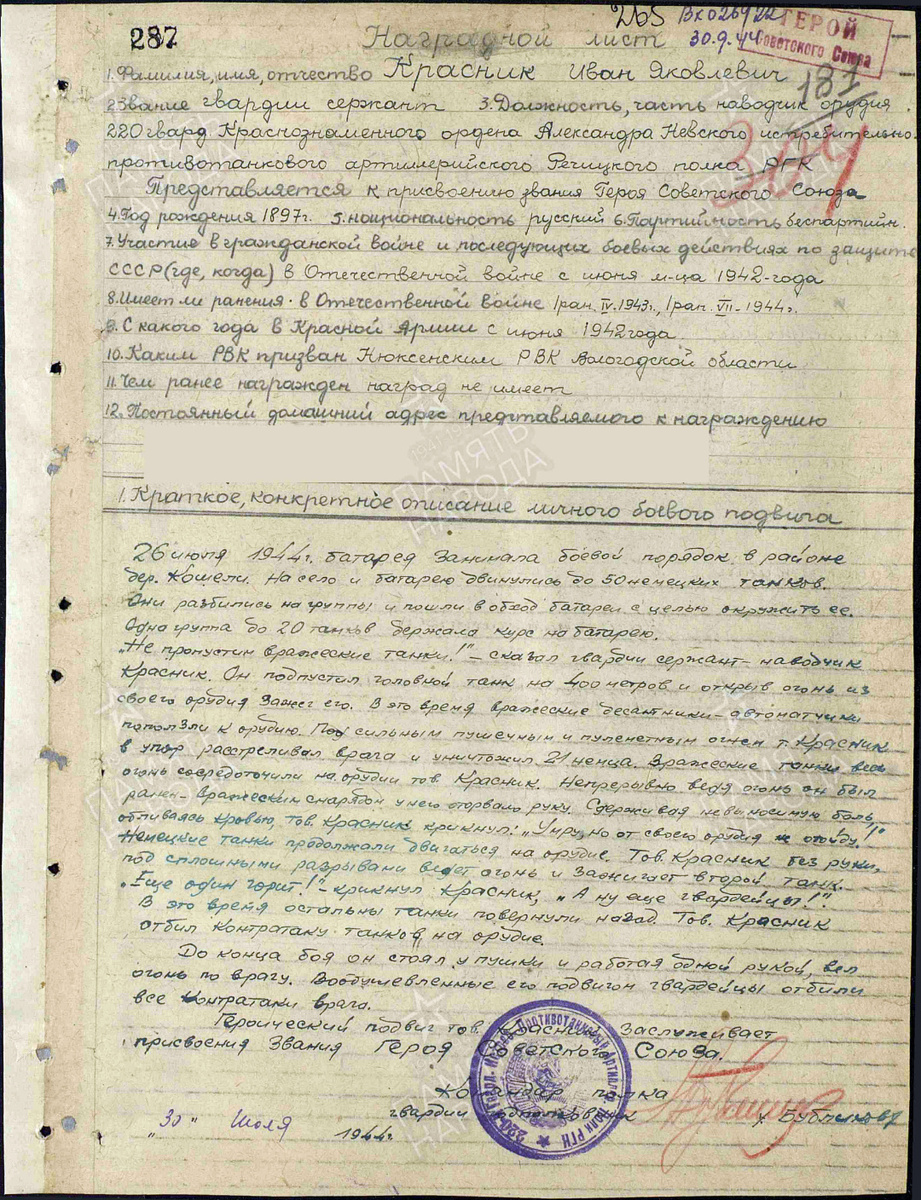 265 Вх026922
287 Наградной лист 30.9.44 ГЕРОЙ
Советского Союза
1. Фамилия, имя, отчество Красник Иван Яковлевич
181
2. Звание гвардии сержант 3. Должность, часть наводчик орудия
220 гвард Краснознаменного ордена Александра Невского истребительно-
противотанкового артиллерийского Речицкого полка РГК
Представляется к присвоению звания Героя Советского Союза
4. Год рождения 1897г. 5. национальность русский 6. Партийность беспартийн.
7. Участие в гражданской войне и последующих боевых действиях по защите
СССР (где, когда) в Отечественной войне с июня м-ца 1942-года
8. Имеет ли ранения в Отечественной войне 1 ран. IV. 1943г., 1 ран. VII-1944г.
9. С какого года в Красной Армии с июня 1942 года
10. Каким РВК призван Нюксенским РВК Вологодской области
11. Чем ранее награжден наград не имеет
12. Постоянный домашний адрес представляемого к награждению
ПАМЯТЬ
НАРОДА
1. Краткое, конкретное описание личного боевого подвига
26 июля 1944г. батарея занимала боевой порядок в районе
дер. Кошели. На село и батарею двинулись до 50 немецких танков.
Они разбились на группы и пошли в обход батареи с целью окружить ее.
Одна группа до 20 танков держала курс на батарею.
"Не пропустим вражеские танки!" - сказал гвардии сержант - наводчик
Красник. Он подпустил головной танк на 400 метров и открыв огонь из
своего орудия зажег его. В это время вражеские десантники - автоматчики
поползли к орудию. Под сильным пушечным и пулеметным огнем т. Красник
в упор расстреливал врага и уничтожил 21 немца. Вражеские танки весь
огонь сосредоточили на орудии тов. Красник. Непрерывно ведя огонь он был
ранен - вражеским снарядом у него оторвало руку. Сдерживая невыносимую боль,
обливаясь кровью, тов. Красник крикнул: "Умру, но от своего орудия не отойду!"
Немецкие танки продолжали двигаться на орудие. Тов. Красник без руки,
под сплошными разрывами ведет огонь и зажигает второй танк.
"Еще один горит!" - крикнул Красник, "А ну еще гвардейцы!"
В это время остальны танки повернули назад. Тов. Красник
отбил контратаку танков на орудие.
До конца боя он стоял у пушки и работая одной рукой, вел
огонь по врагу. Воодушевленные его подвигом гвардейцы отбили
все контратаки врага.
Героический подвиг тов. Красник заслуживает
присвоения звания Героя Советского Союза.
Командир полка
гвардии подполковник /Бубликов/
"30" июля 1944г.